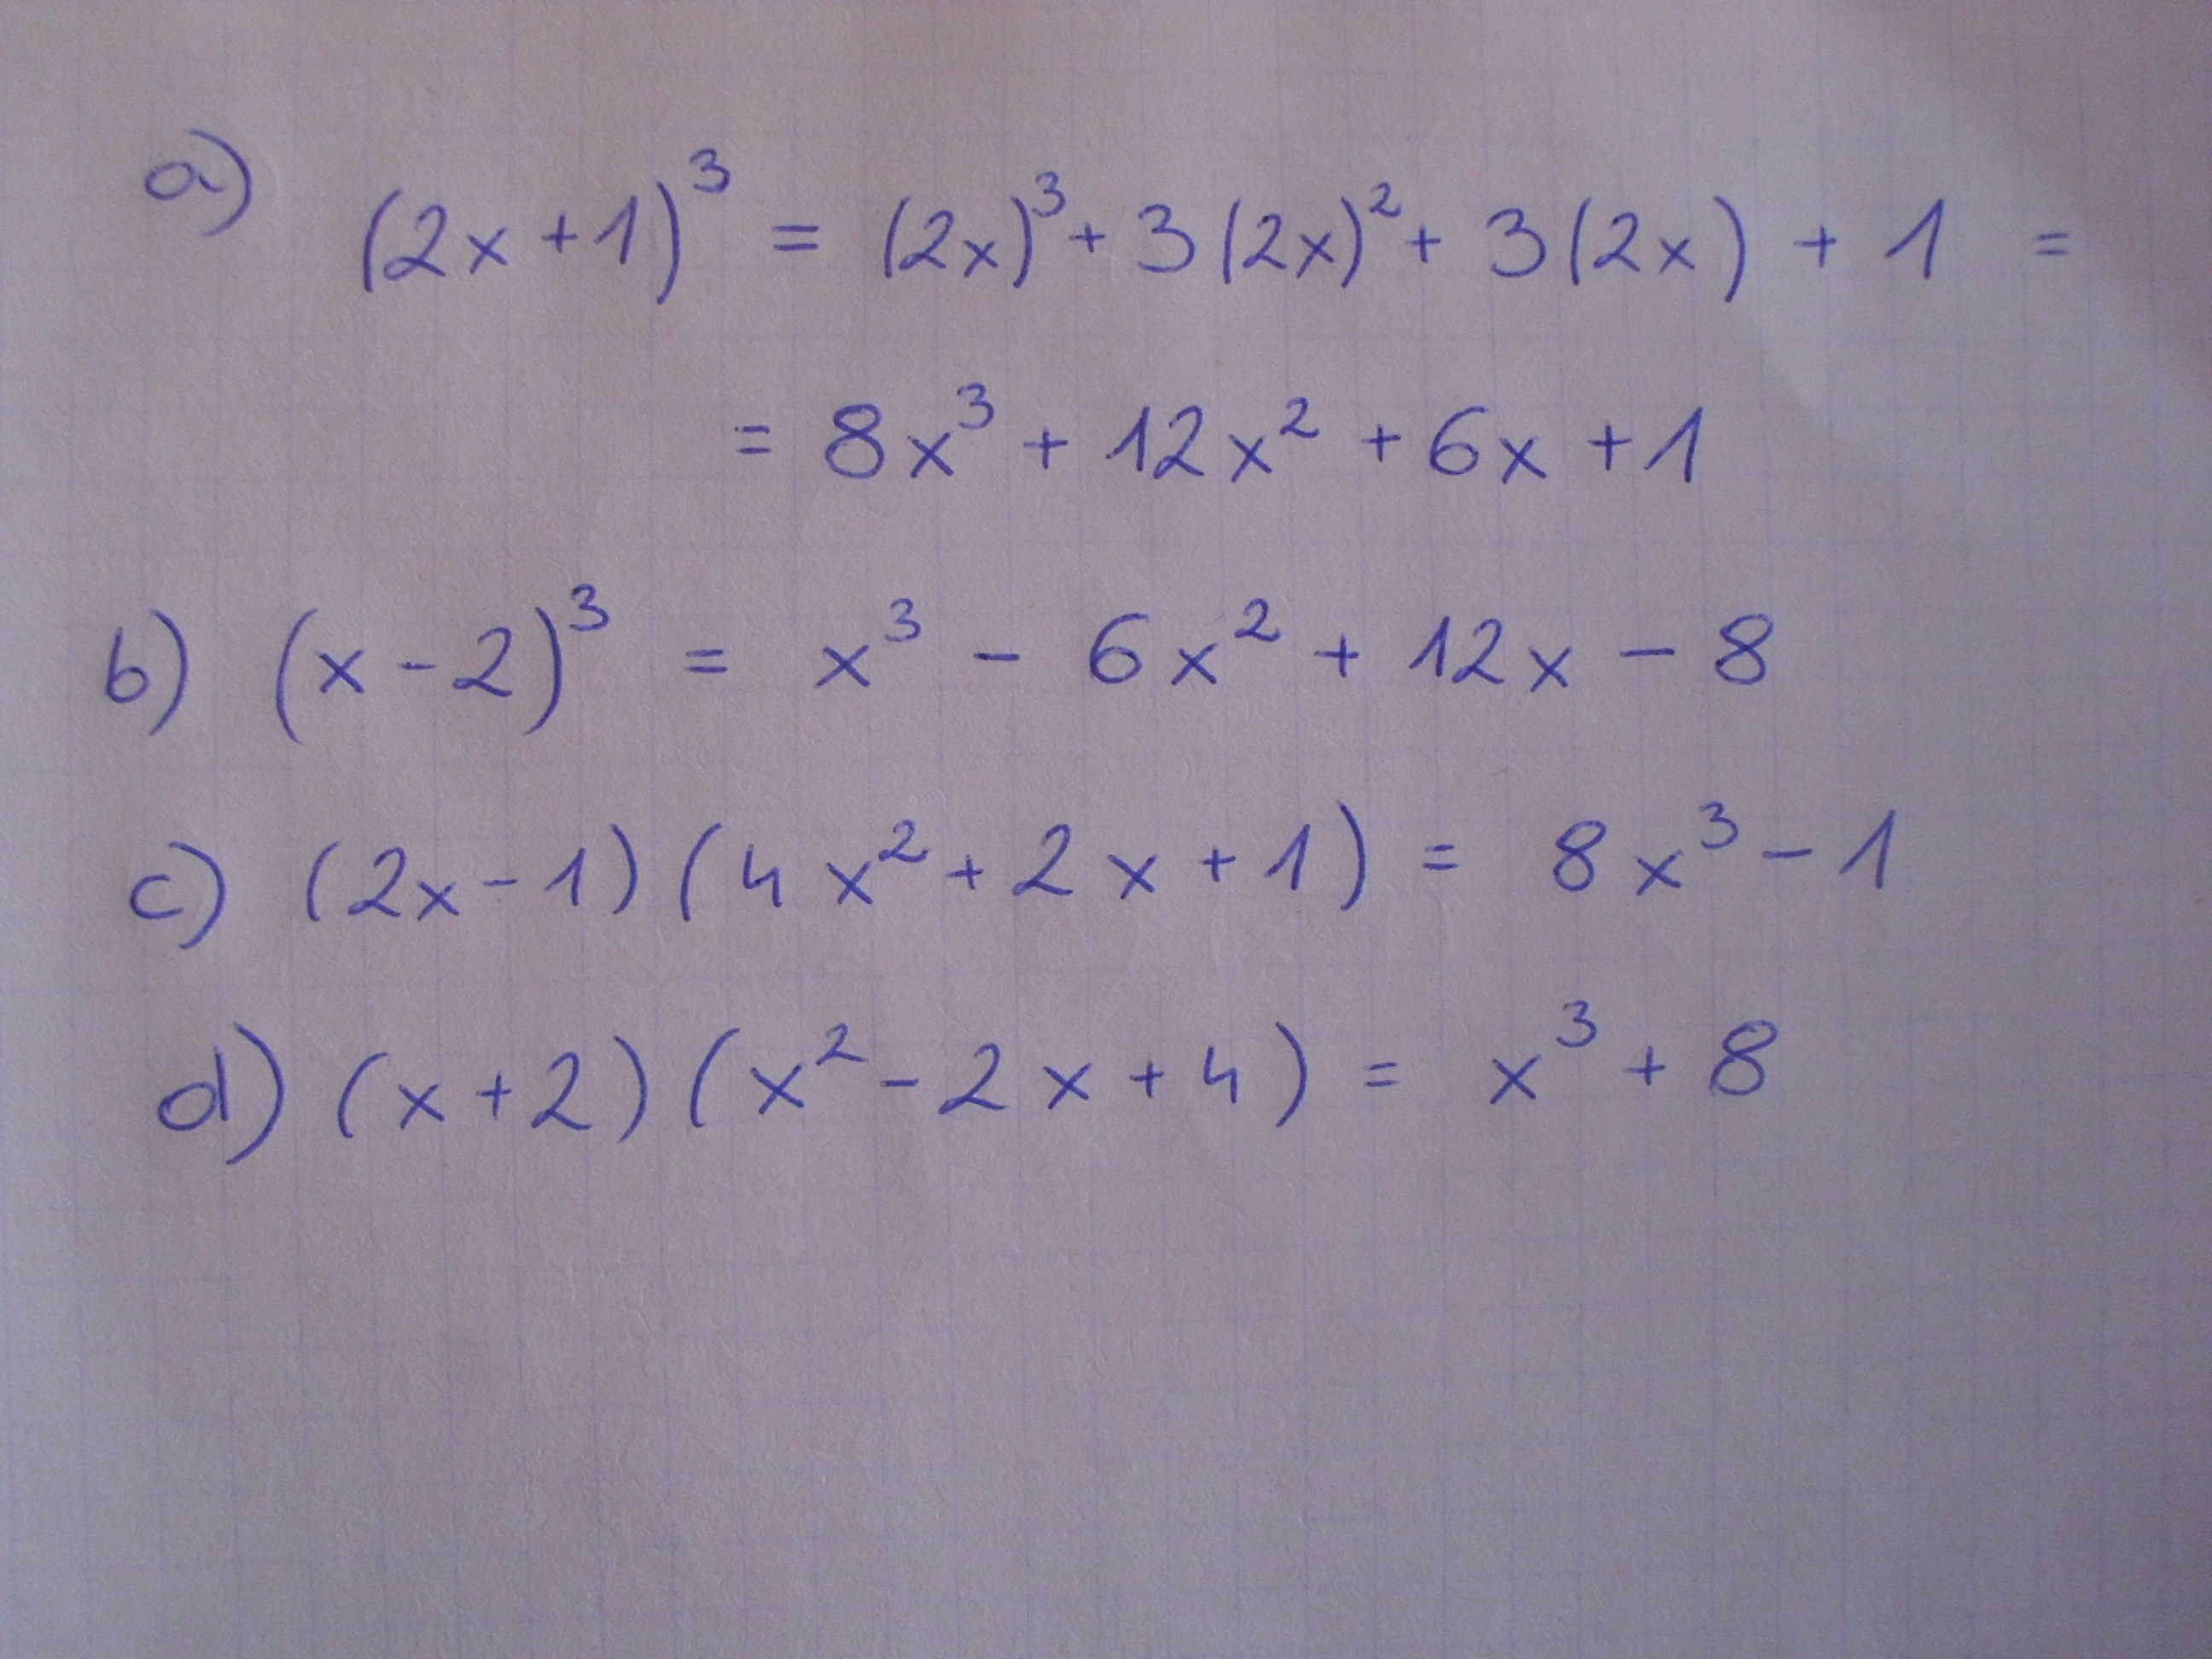 a) (2x+1)³ = (2x)³ + 3(2x)² + 3(2x) + 1 =
= 8x³ + 12x² + 6x + 1
b) (x-2)³ = x³ - 6x² + 12x - 8
c) (2x-1)(4x²+2x+1) = 8x³ - 1
d) (x+2)(x²-2x+4) = x³ + 8